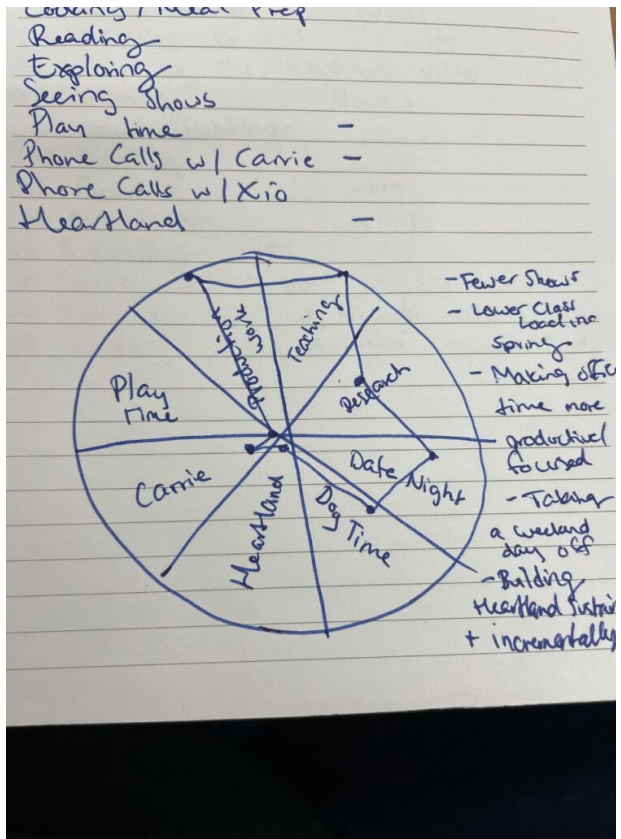 Cooking / Meal Prep
Reading
Exploring
Seeing Shows
Play time -
Phone Calls w/ Carrie -
Phone Calls w/ Xio
Heartland -
Production
work
Teaching
Research
Date Night
Dog Time
Heartland
Carrie
Play
Time
- Fewer Shows
- Lower Class
Load in
Spring
- Making offic
time more
productive/
focused
- Taking
a weekend
day off
- Building
Heartland Sustain
+ incrementally